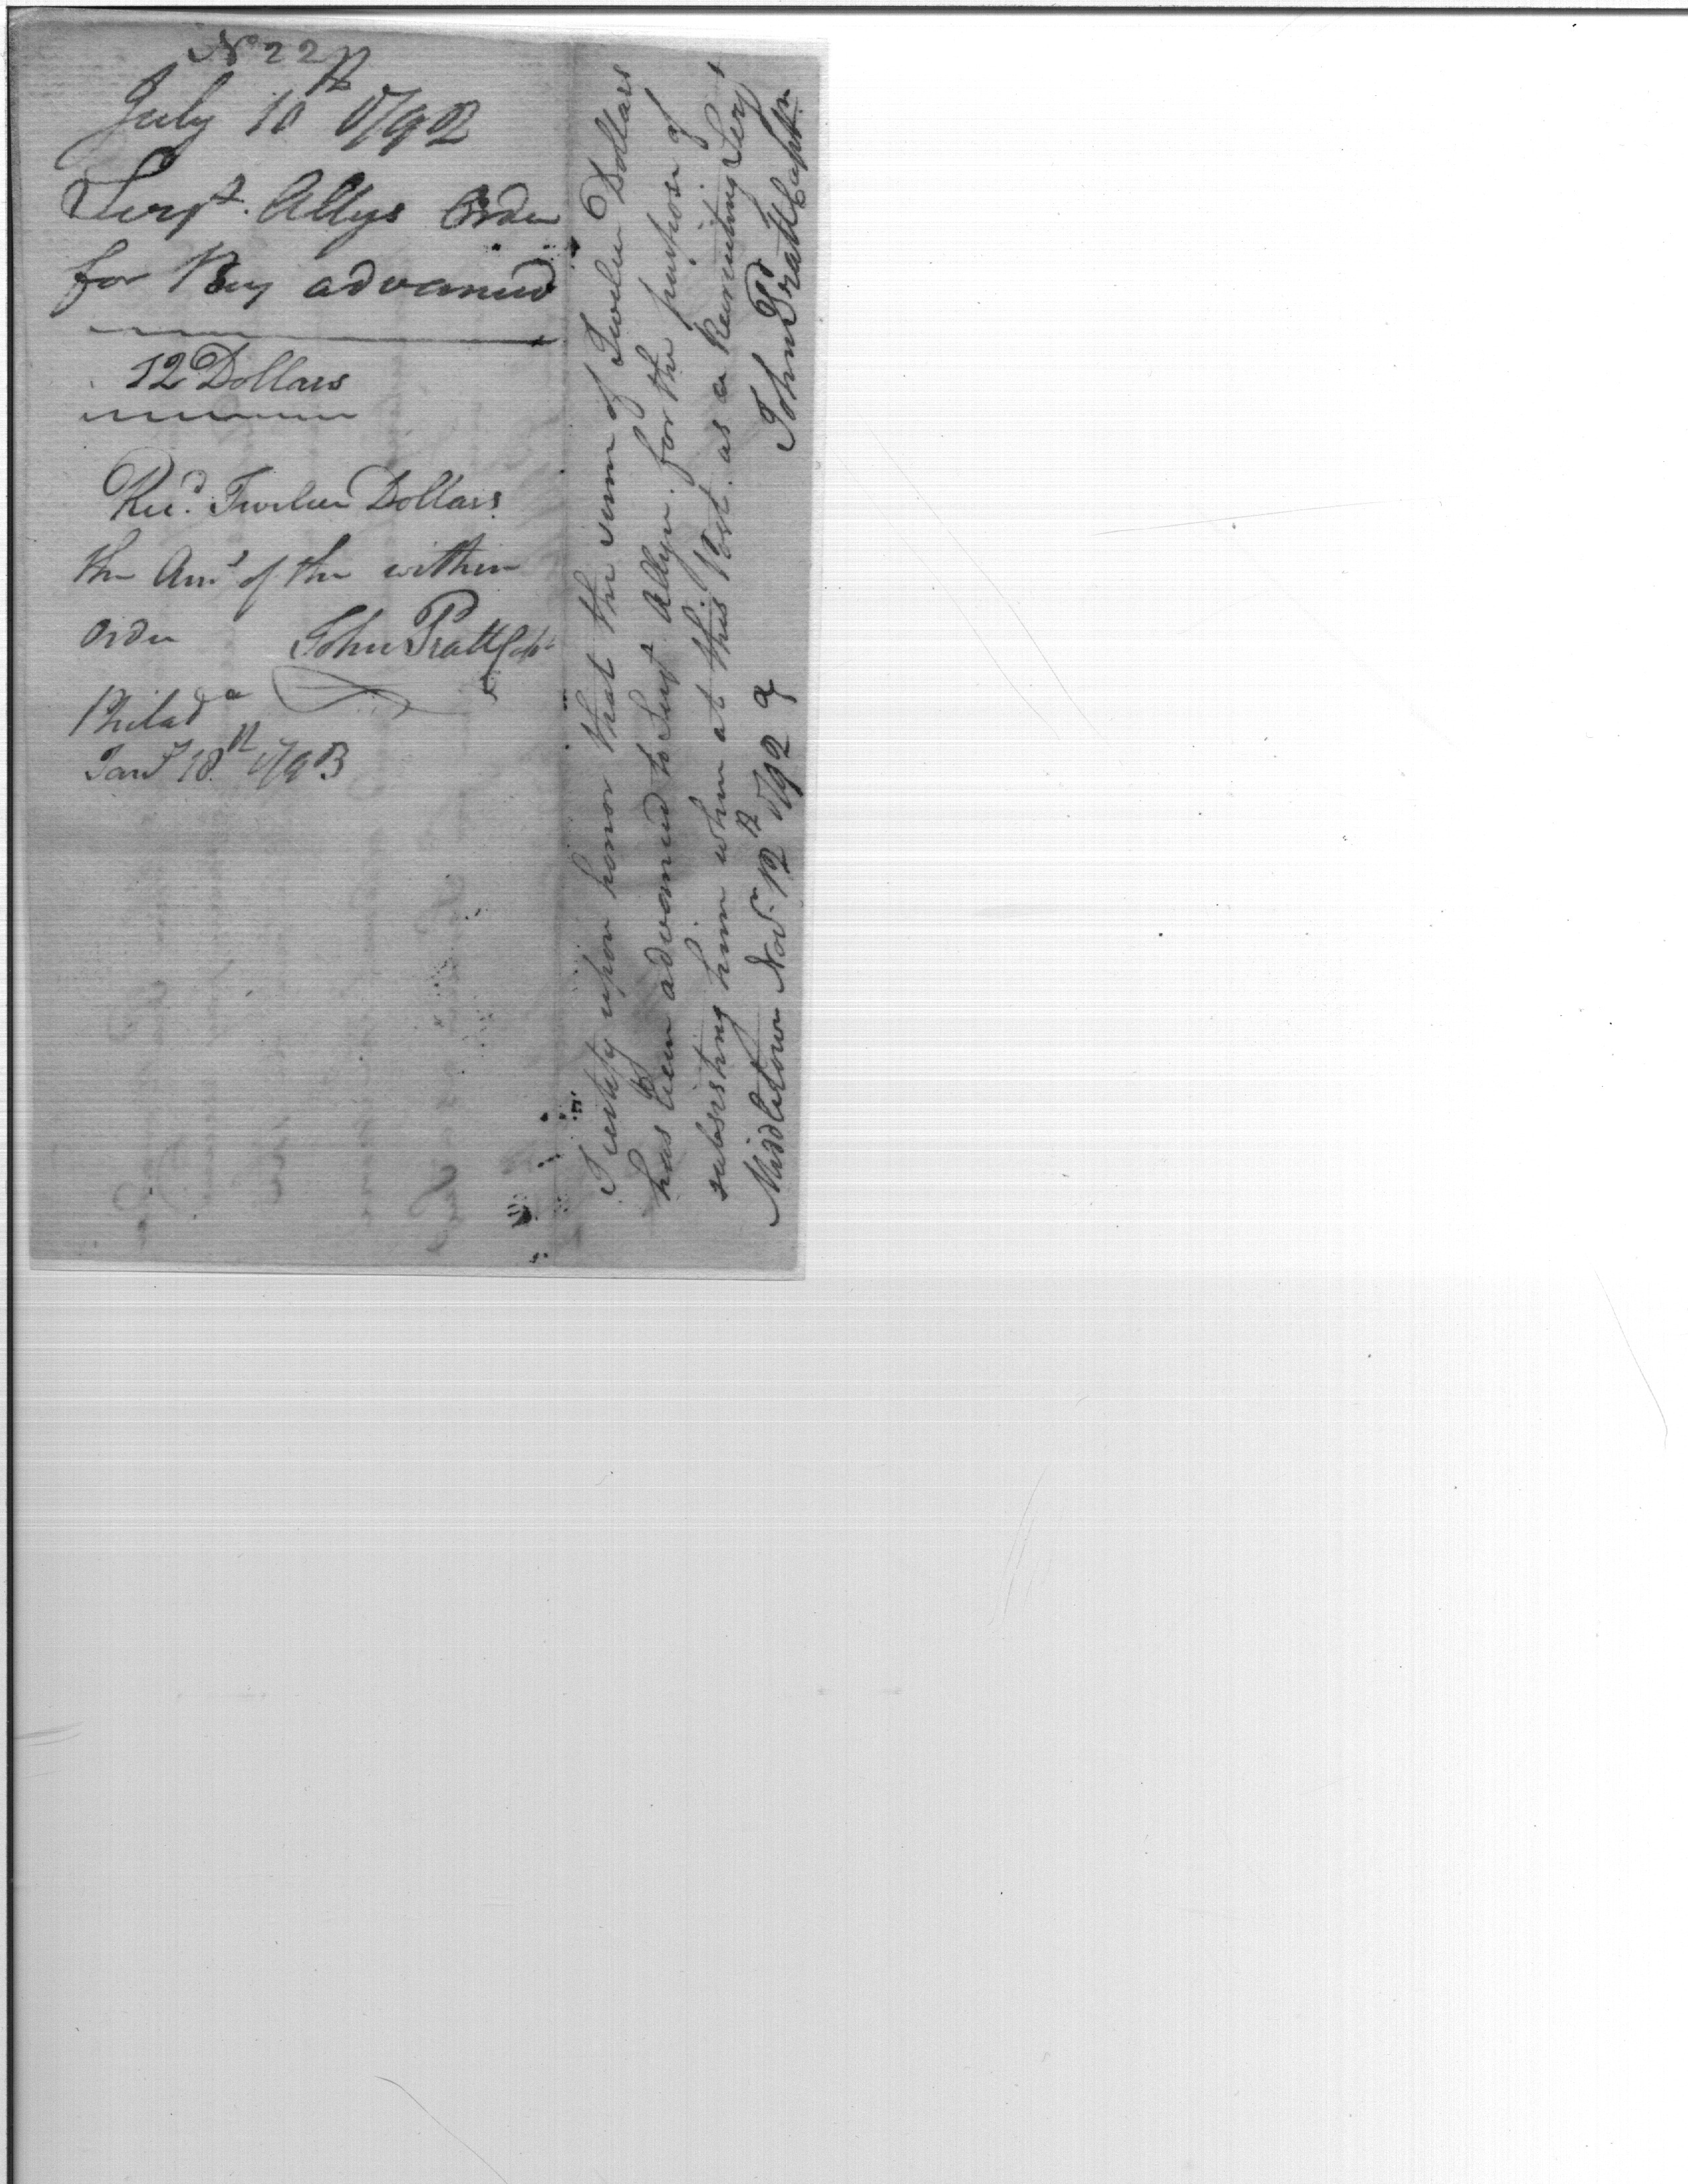 No 22
July 10th 1792
Sergt. Allys Order
for Pay advanced
12 Dollars
Recd. Twelve Dollars
the Amt of the within
Order John Pratt Capt
Philada
Jany 18th 1793
I certify upon honor that the sum of Twelve Dollars
has been advanced to Sergt Allyn. for the purpose of
subsisting him when at this Post. as a Recruiting Sergt
Middletown Novr. 12th 1792 John Pratt Captn.